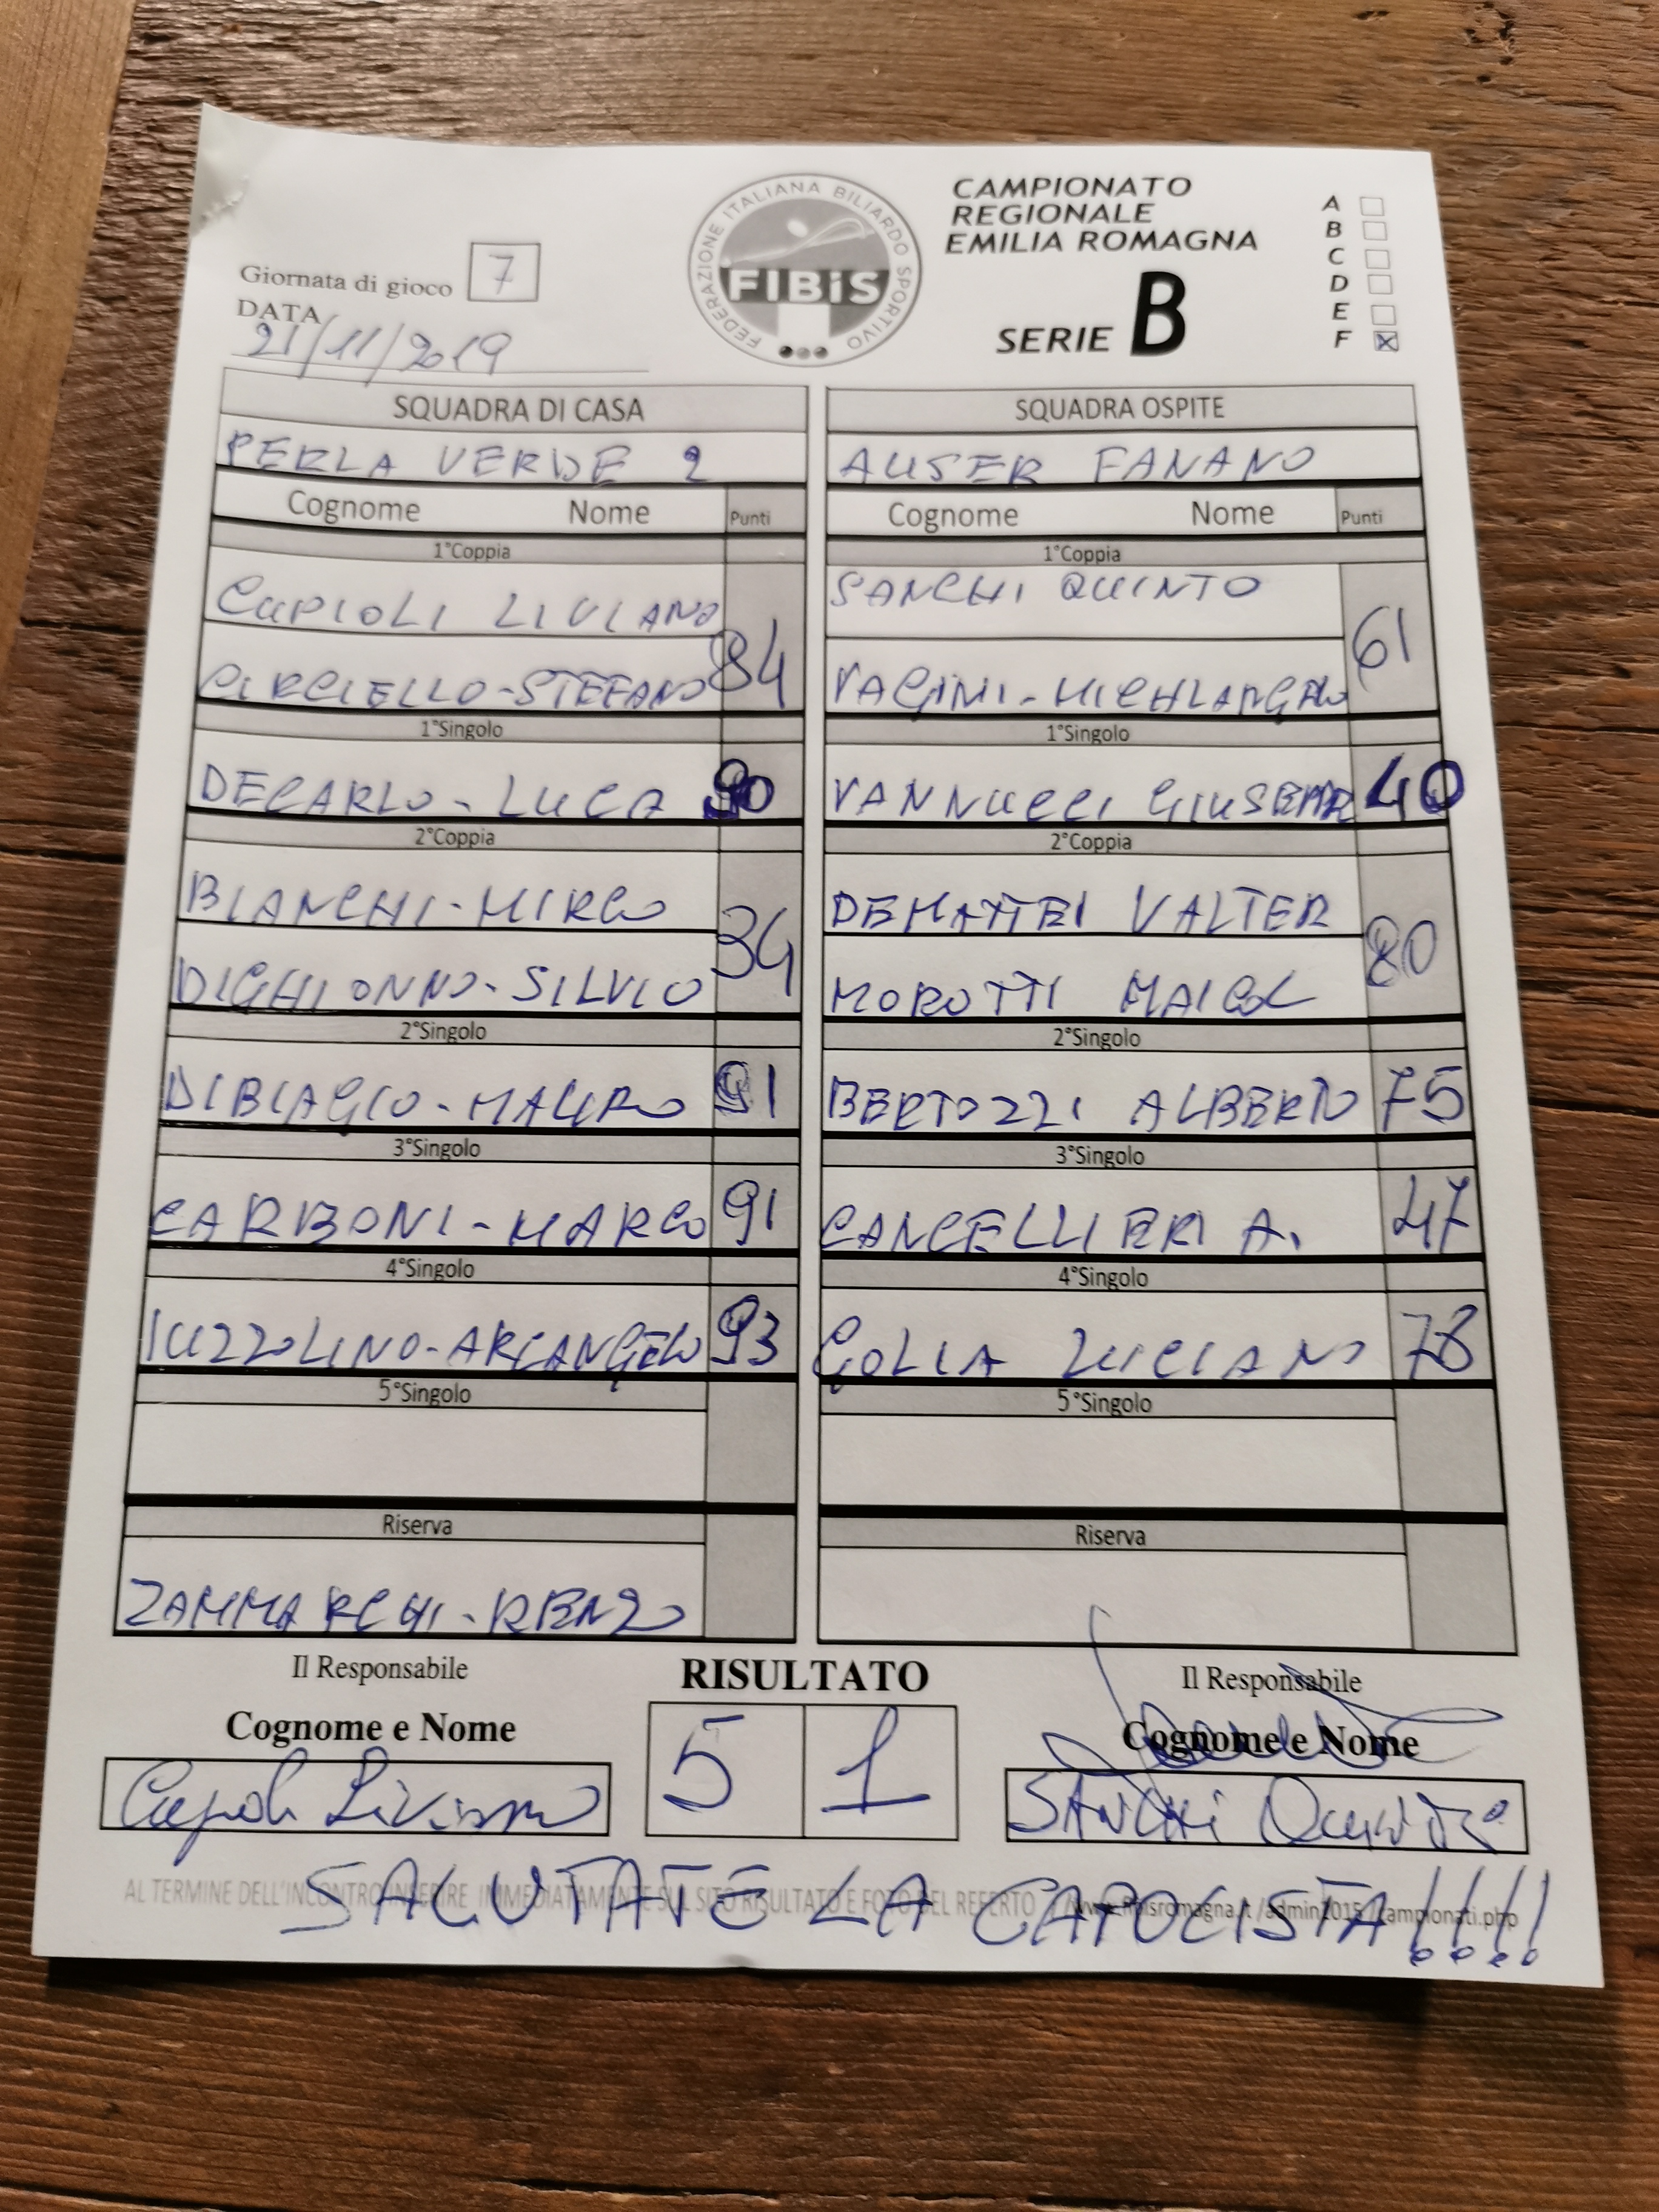 FEDERAZIONE ITALIANA BILIARDO SPORTIVO
FIBiS
CAMPIONATO
REGIONALE
EMILIA ROMAGNA
SERIE B
A
B
C
D
E
F X
Giornata di gioco 7
DATA
21/11/2019
SQUADRA DI CASA
PERLA VERDE 2
Cognome Nome Punti
1°Coppia
CUPIOLI LIVIANO
84
CIRCIELLO-STEFANO
1°Singolo
DECARLO - LUCA 90
2°Coppia
BIANCHI-MIRCO
34
DIGHIONNO-SILVIO
2°Singolo
DIBIAGIO-MAURO 91
3°Singolo
CARBONI-MARCO 91
4°Singolo
IUZZOLINO-ARCANGELO 93
5°Singolo
Riserva
ZAMMARCHI-RENZO
SQUADRA OSPITE
AUSER FANANO
Cognome Nome Punti
1°Coppia
SANCHI QUINTO
61
1°Singolo
VANNUCCI GIUSEPPE 40
2°Coppia
DEMATTEI VALTER
80
MOROTTI MAICOL
2°Singolo
BERTOZZI ALBERTO 75
3°Singolo
CANCELLIERI A. 47
4°Singolo
GOLIA LUCIANO 78
5°Singolo
Riserva
Il Responsabile
Cognome e Nome
Cupioli Liviano
RISULTATO
5 1
Il Responsabile
Cognome e Nome
SANCHI Quinto
AL TERMINE DELL'INCONTRO INSERIRE IMMEDIATAMENTE SUL SITO RISULTATO E FOTO DEL REFERTO /www.fibisromagna.it /admin2015 /campionati.php
SALUTATE LA CAPOLISTA!!!!